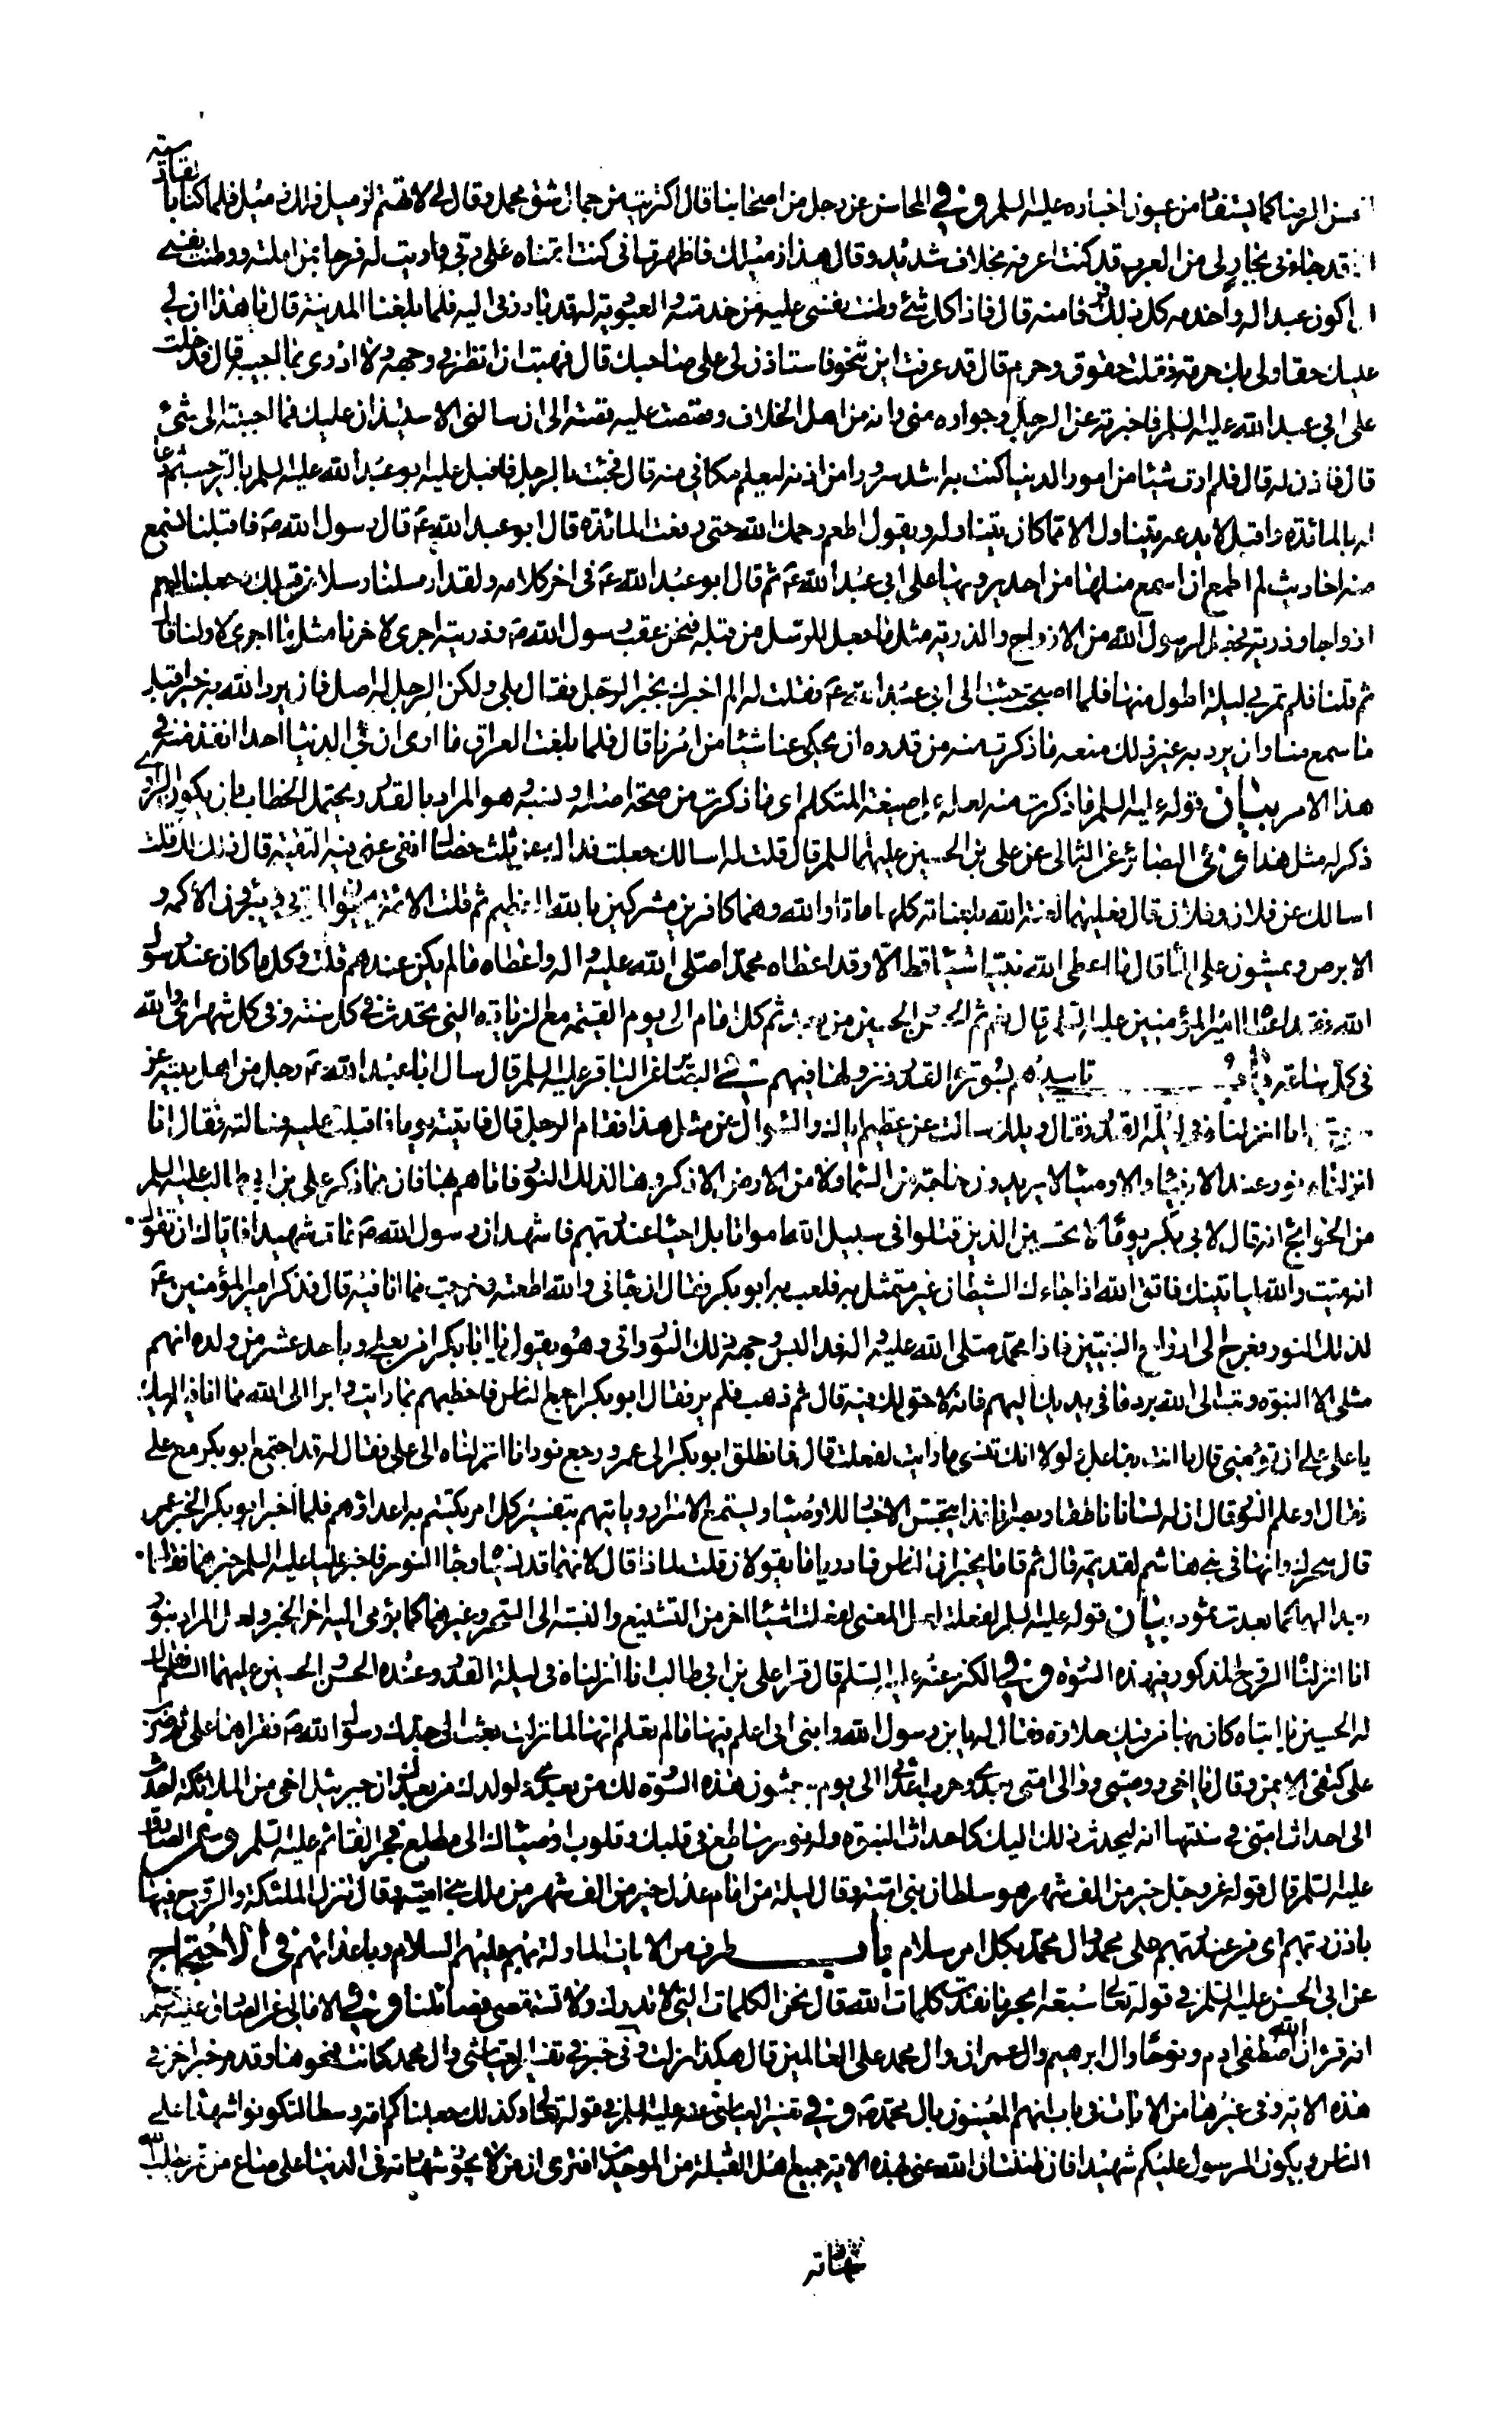 بقادسية
الرضا كما يستفاد من عيون اخباره عليه السلم وفي المحاسن عن رجل من اصحابنا قال اكتريت من جمال شق محمل وقال لي لا تهتم لزميل فلك زميل فلما كنا با
قد جاءني بجار لي من العرب قد كنت اعرفه بخلاف شديد وقال هذا زميلك فاظهرت اني كنت اتمناه على ربي واديت له فرحا بمزاملته ووطنت نفسي
اكون عبدا له واخدمه كل ذلك فرقا منه قال فاذا كل شئ وطنت نفسي عليه من خدمته والعبودية له قد بادرني اليه فلما بلغنا المدينة قال يا هذا ان لي
عليك حقا ولي بك حرمة فقلت حقوق وحرم قال قد عرفت اين تنحو فاستاذن لي على صاحبك قال فبهت ان انظر في وجهه ولا ادري بما اجيبه قال فدخلت
على ابي عبد الله عليه السلم فاخبرته عن الرجل وجواره مني وانه من اهل الخلاف وقصصت عليه قصته الى ان سالني الاستيذان عليك فما اجبته الى شئ
قال فاذن له قال فلم اوت شيئا من امور الدنيا كنت به اشد سرورا من اذنه ليعلم مكاني منه قال فجئت بالرجل فاقبل عليه ابو عبد الله عليه السلم بالترحيب ثم دعا
له بالمائدة واقبل لا يدعه يتناول الا مما كان يتناوله ويقول اطعم رحمك الله حتى رفعت المائدة قال ابو عبد الله ع قال رسول الله ص فاقبلنا نسمع
منه احاديث لم اطمع ان اسمع مثلها من احد يرويها على ابي عبد الله ع ثم قال ابو عبد الله ع في اخر كلامه ولقد ارسلنا رسلا من قبلك وجعلنا لهم
ازواجا وذرية فجعل لرسول الله من الازواج والذرية مثل ما جعل للرسل من قبله فنحن عقب رسول الله ص وذريته اجرى لاخرنا مثل ما اجرى لاولنا قال
ثم قمنا فلم تمر بي ليلة اطول منها فلما اصبحت جئت الى ابي عبد الله ع فقلت له الم اخبرك بخبر الرجل فقال بلى ولكن الرجل له اصل فان يرد الله به خيرا قبل
ما سمع منا وان يرد به غير ذلك منعه ما ذكرت منه من قدره ان يحكي عنا شيئا من امرنا قال فلما بلغت العراق ما ارى ان في الدنيا احدا انفذ منه في
هذا الامر بيان قوله عليه السلم ما ذكرت منه لعله بصيغة المتكلم اي ما ذكرت من صحة اصله ونسبه هو المراد بالقدر ويحتمل الخطاب بان يكون الراوي
ذكر له مثل هذا وفي البصائر عن الثمالي عن علي بن الحسين عليهما السلم قال قلت له اسالك جعلت فداك عن ثلث خصال انفي عني فيه التقية قال ذلك لك قلت
اسالك عن فلان وفلان قال فعليهما لعنة الله بلعناته كلها ماتا والله وهما كافرين مشركين بالله العظيم ثم قلت الائمة يحيون الموتى ويبرؤن الاكمه و
الابرص ويمشون على الماء قال ما اعطى الله نبيا شيئا قط الا وقد اعطاه محمدا صلى الله عليه واله واعطاه ما لم يكن عندهم قلت وكل ما كان عند رسول
الله فقد اعطاه امير المؤمنين عليه السلم قال نعم ثم الحسن والحسين من بعد ثم كل امام الى يوم القيمة مع الزيادة التي تحدث في كل سنة وفي كل شهر اي والله
في كل ساعة باب تاييدهم بسورة القدر ونزولها فيهم في البصائر عن الباقر عليه السلم قال سال ابا عبد الله ع رجل من اهل بيته عن
سورة انا انزلناه في ليلة القدر فقال ويلك سالت عن عظيم اياك والسؤال عن مثل هذا فقام الرجل قال فاتيته يوما فاقبلت عليه فسالته فقال انا
انزلناه نور عند الانبياء والاوصياء لا يريدون حاجة من السماء ولا من الارض الا ذكروها لذلك النور فاتاهم بها فان مما ذكر علي بن ابي طالب عليه السلم
من الحوائج انه قال لابي بكر يوما لا تحسبن الذين قتلوا في سبيل الله امواتا بل احياء عند ربهم فاشهد ان رسول الله ص مات شهيدا فاياك ان تقول
انه ميت والله لياتينك فاتق الله اذا جاءك الشيطان غير متمثل به فعجب به ابو بكر فقال ان جاءني والله اطعته وخرجت مما انا فيه قال فذكر امير المؤمنين ع
لذلك النور فعرج الى ارواح النبيين فاذا محمد صلى الله عليه واله قد البس وجهه ذلك النور واتى وهو يقول يا ابا بكر امن بعلي وباحد عشر من ولده انهم
مثلي الا النبوة وتب الى الله برد ما في يديك اليهم فانه لا حق لك فيه قال ثم ذهب فلم ير فقال ابو بكر اجمع الناس فاخطبهم بما رايت وابرا الى الله مما انا فيه اليك
يا علي على ان تؤمنني قال ما انت بفاعل ولولا انك تنسى ما رايت لفعلت قال فانطلق ابو بكر الى عمر ورجع نور انا انزلناه الى علي فقال له قد اجتمع ابو بكر مع عمر
فقلت او علم النور قال ان له لسانا ناطقا وبصرا نافذا يتجسس الاخبار للاوصياء ويستمع الاسرار وياتيهم بتفسير كل امر يكتتم به اعداؤهم فلما اخبر ابو بكر الخبر عمر
قال سحرك وانها في بني هاشم لقديمة قال ثم قاما يخبران الناس فما دريا ما يقولان قلت لماذا قال لانهما قد نسياه وجاء النور فاخبر عليا عليه السلم خبرهما فقال
بعدا لهما كما بعدت ثمود بيان قوله عليه السلم لفعلت لعل المعنى لفعلت شيئا اخر من التشنيع والنسبة الى السحر وغيرهما كما يؤمي اليه اخر الخبر ولعل المراد بنور
انا انزلناه الروح المذكور في هذه السورة وفي الكنز عنه عليه السلم قال قرا علي بن ابي طالب انا انزلناه في ليلة القدر وعنده الحسن والحسين عليهما السلم فقال
له الحسين يا ابتاه كان بها من فيك حلاوة فقال له يابن رسول الله وابني اني اعلم فيها ما لم تعلم انها لما نزلت بعث الي جدك رسول الله ص فقراها علي ثم ضرب
على كتفي الايمن وقال يا اخي ووصيي ووالي امتي بعدي وحرب اعدائي الى يوم يبعثون هذه السورة لك من بعدي ولولدك من بعدك ان جبرئيل اخي من الملائكة احدث
الي احداث امتي في سنتها انه ليحدث ذلك اليك كاحداث النبوة وله نور ساطع في قلبك وقلوب اوصيائك الى مطلع فجر القائم عليه السلم وفي عن الصادق
عليه السلم قال قوله عز وجل خير من الف شهر هو سلطان بني امية وقال ليلة من امام عدل خير من الف شهر من ملك بني امية وقال تنزل الملئكة والروح فيها
باذن ربهم اي من عند ربهم على محمد وال محمد بكل امر سلام باب طرف من الايات الماولة بهم عليهم السلام وباعدائهم في الاحتجاج
عن ابي الحسن عليه السلم في قوله تعالى سبعة ابحر ما نفدت كلمات الله قال نحن الكلمات التي لا تدرك ولا تستقصى فضائلنا وفي الامالي عن الصادق عليه السلم
انه قرا ان الله اصطفى ادم ونوحا وال ابراهيم وال عمران وال محمد على العالمين قال هكذا نزلت وفي خبر في تفسير العياشي وال محمد كانت فمحوها وقد مر خبر اخر في
هذه الاية وفي غيرها من الايات في باب انهم المعنيون بال محمد ص وفي تفسير العياشي عنه عليه السلم في قوله تعالى وكذلك جعلناكم امة وسطا لتكونوا شهداء على
الناس ويكون الرسول عليكم شهيدا فان ظننت ان الله عنى بهذه الاية جميع اهل القبلة من الموحدين افترى ان من لا يجوز شهادته في الدنيا على صاع من تمر يطلب الله
شهادته